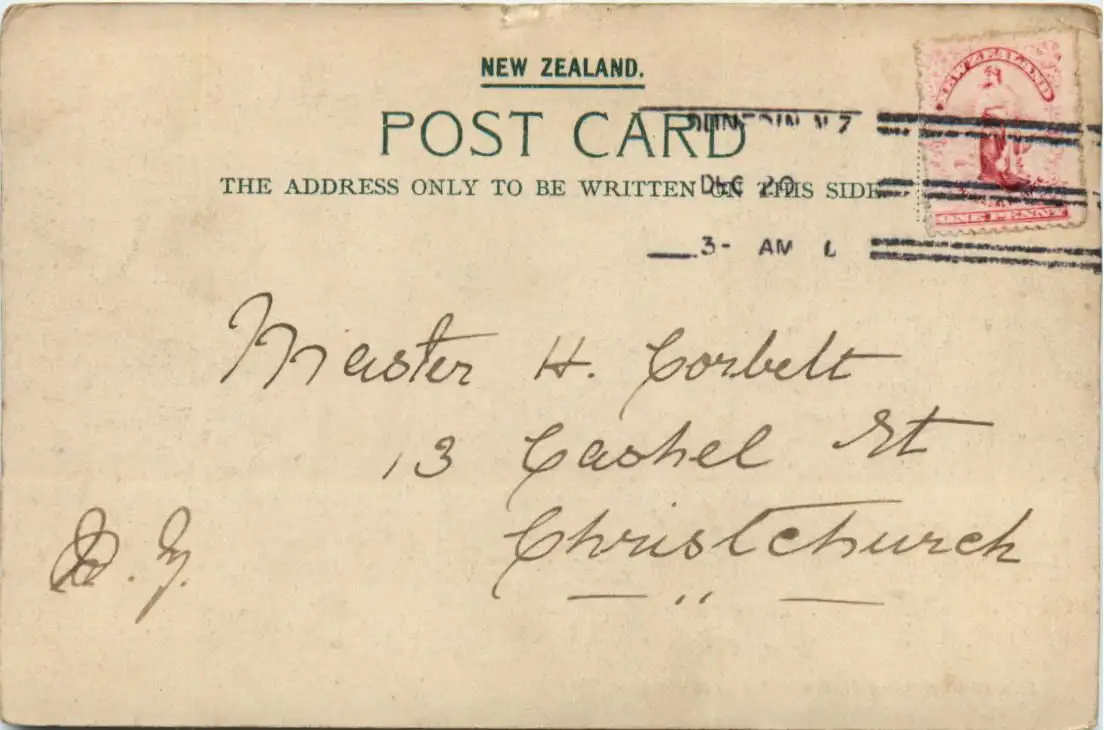 NEW ZEALAND.
POST CARD
THE ADDRESS ONLY TO BE WRITTEN ON THIS SIDE
DUNEDIN N Z
DEC 20
3- AM
NEW ZEALAND
ONE PENNY
Master H. Corbett
13 Cashel St
Christchurch